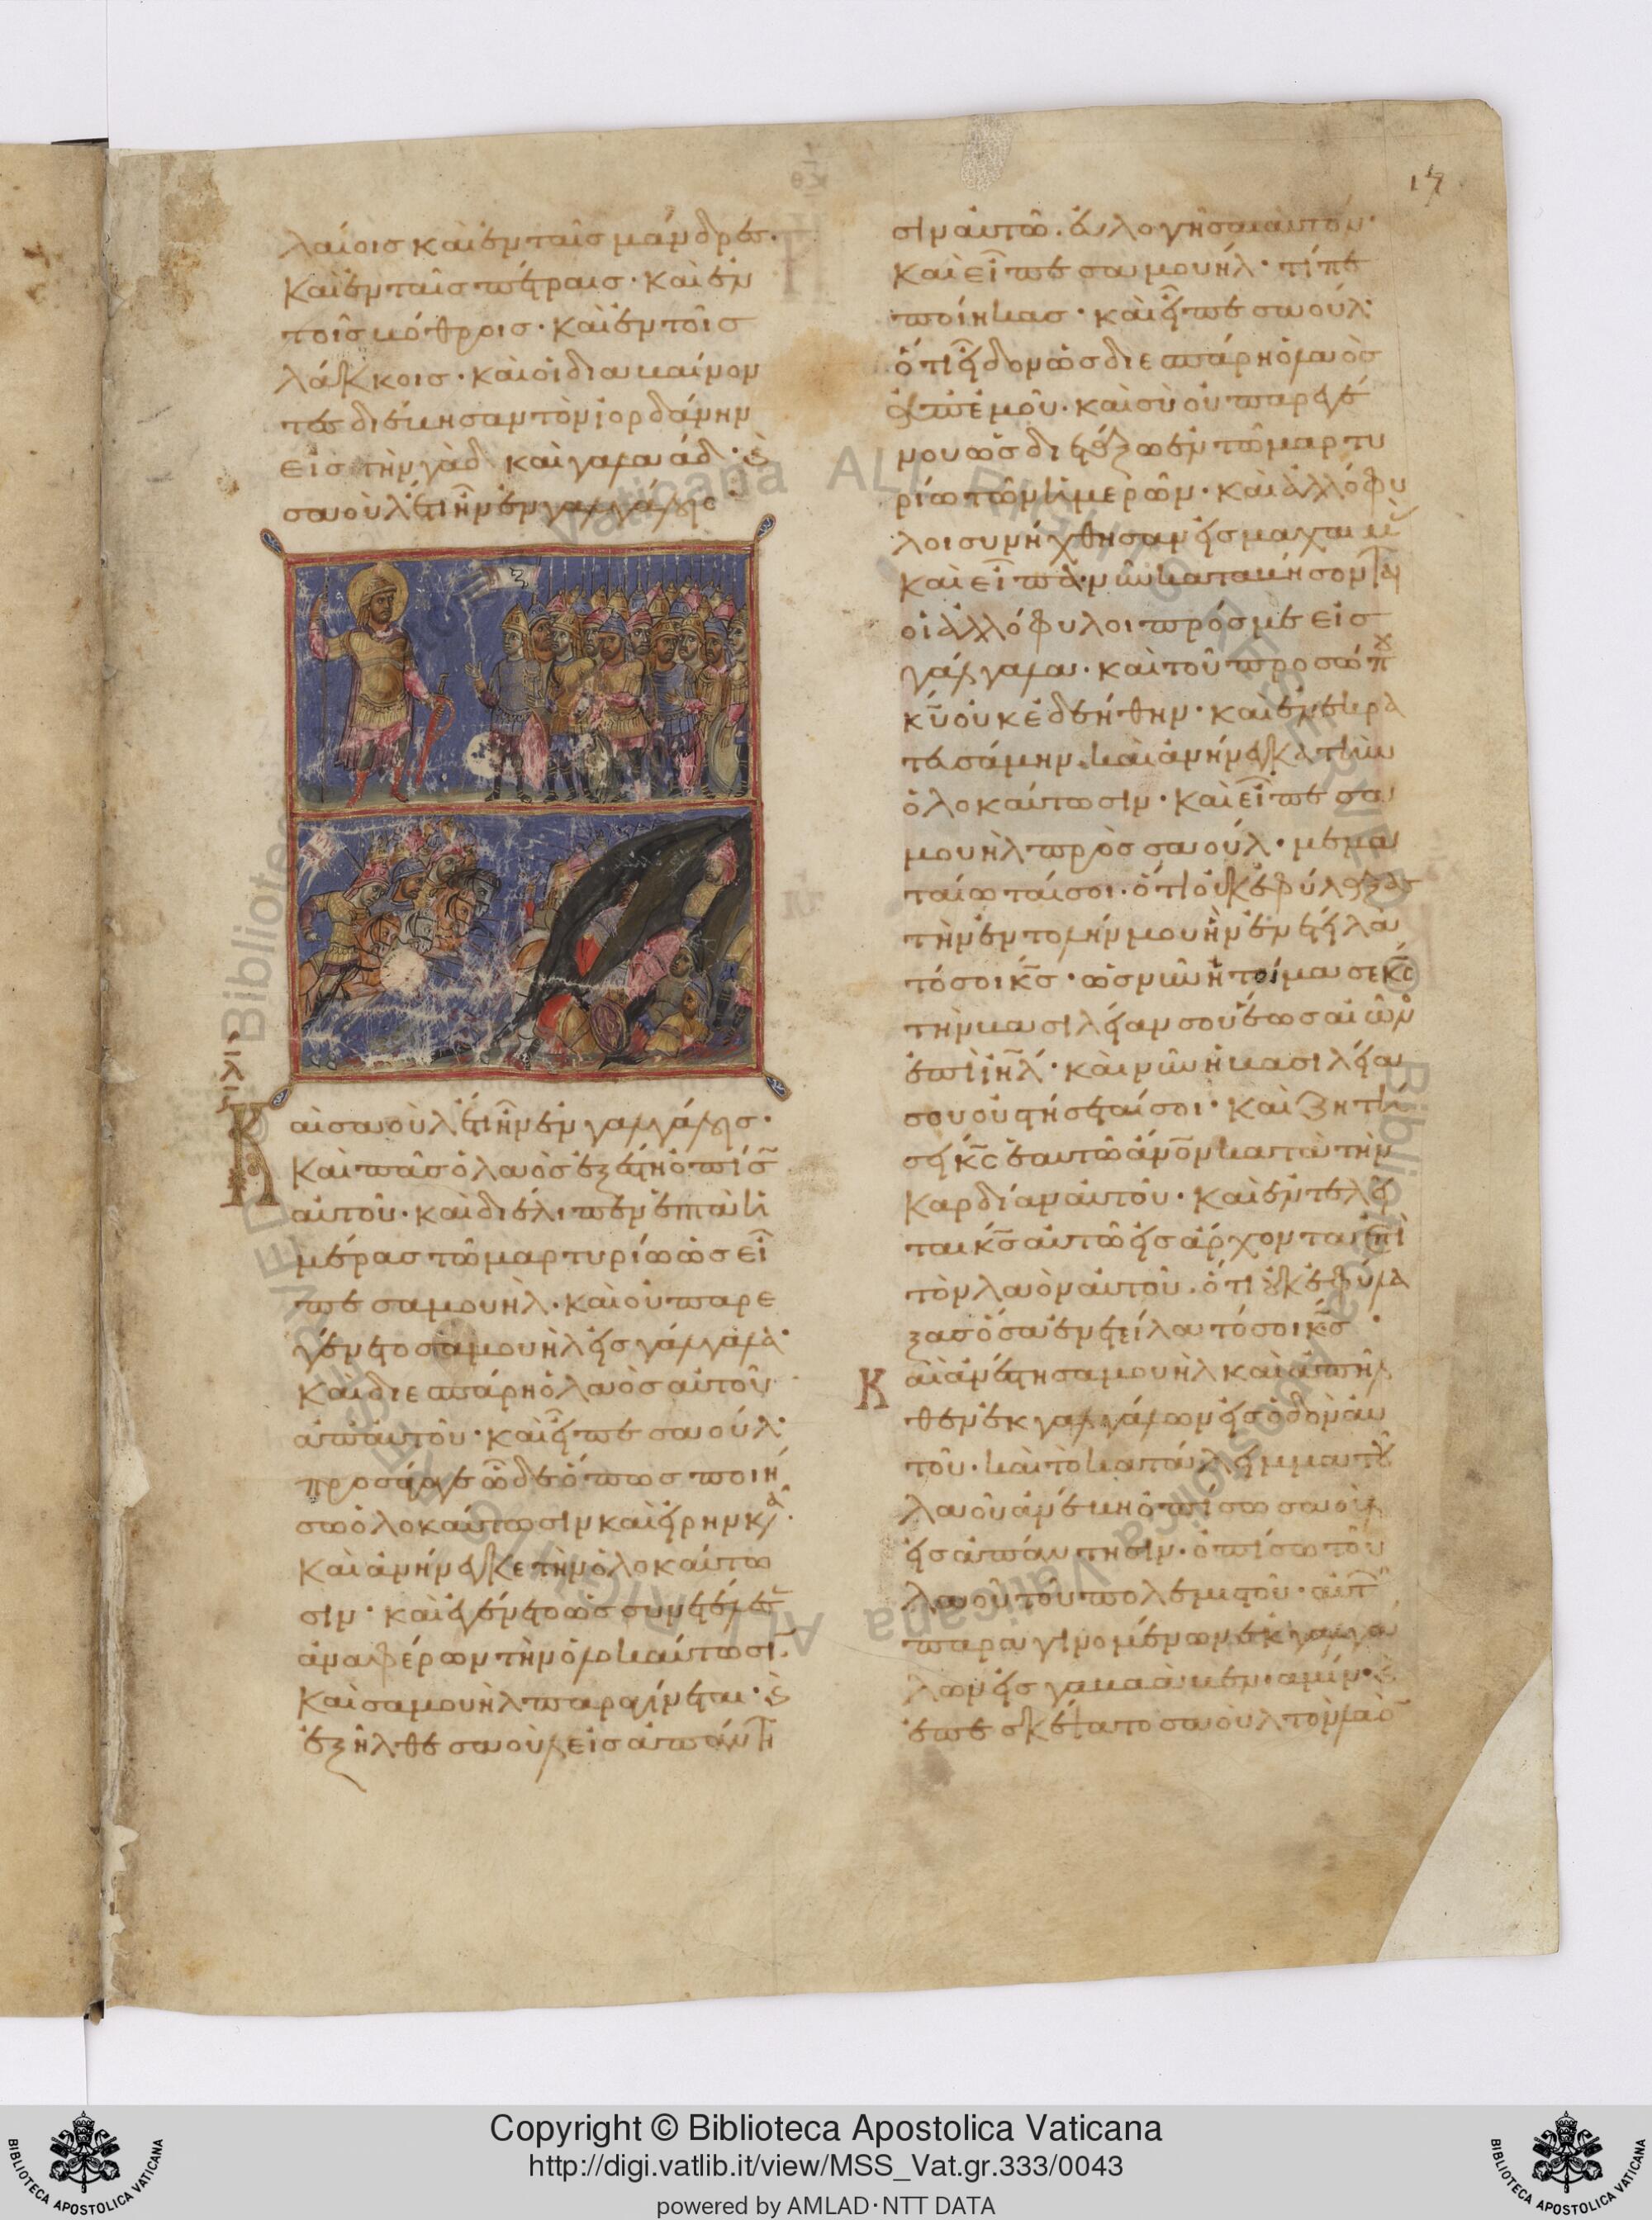 17
λαίοις καὶ ἐν ταῖς μάνδραις·
καὶ ἐν ταῖς πέτραις· καὶ ἐν
τοῖς βόθροις· καὶ ἐν τοῖς
λάκκοις· καὶ οἱ διαβαίνον
τες διέβησαν τὸν ἰορδάνην
εἰς τὴν γὰδ καὶ γαλαάδ·
σαοὺλ ἔτι ἦν ἐν γαλγάλοις·
Καὶ σαοὺλ ἔτι ἦν ἐν γαλγάλοις·
καὶ πᾶς ὁ λαὸς ἐξέστη ὀπίσ
αὐτοῦ· καὶ διέλιπεν ἑπτὰ ἡ
μέρας τῶ μαρτυρίω ὡς εἶ
πε σαμουὴλ· καὶ οὐ παρε
γένετο σαμουὴλ εἰς γάλγαλα·
καὶ διεσπάρη ὁ λαὸς αὐτοῦ
ἀπ αὐτοῦ· καὶ εἶπε σαούλ·
προσαγάγετε ὧδε ὅπως ποιή
σω ὁλοκαύτωσιν καὶ εἰρηνικάς·
καὶ ἀνήνεγκε τὴν ὁλοκαύτω
σιν· καὶ ἐγένετο ὡς συνετέλεσεν
ἀναφέρων τὴν ὁλοκαύτωσιν
καὶ σαμουὴλ παραγίνεται·
ἐξῆλθε σαοὺλ εἰς ἀπάντη
σιν αὐτῶ. εὐλογῆσαι αὐτόν·
καὶ εἶπε σαμουήλ· τί πε
ποίηκας· καὶ εἶπε σαούλ·
ὅτι εἶδον ὡς διεσπάρη ὁ λαὸς
ἀπ ἐμοῦ· καὶ σὺ οὐ παρεγέ
νου ὡς διετάξω ἐν τῶ μαρτυ
ρίω τῶν ἡμερῶν· καὶ ἀλλόφυ
λοι συνήχθησαν εἰς μαχαμὰς
καὶ εἶπα· νῦν καταβήσονται
οἱ ἀλλόφυλοι πρός με εἰς
γάλγαλα· καὶ τοῦ προσώπου
κυ οὐκ ἐδεήθην· καὶ ἐνεκρα
τευσάμην. καὶ ἀνήνεγκα τὴν
ὁλοκαύτωσιν· καὶ εἶπε σα
μουὴλ πρὸς σαούλ· μεμα
ταίωταί σοι· ὅτι οὐκ ἐφύλαξας
τὴν ἐντολήν μου ἣν ἐνετείλα
τό σοι κς· ὡς νῦν ἡτοίμασε κς
τὴν βασιλείαν σου ἕως αἰῶν
ἐπὶ ιηλ· καὶ νῦν ἡ βασιλεία
σου οὐ στήσεταί σοι· καὶ ζητή
σει κς ἑαυτῶ ανον κατὰ τὴν
καρδίαν αὐτοῦ· καὶ ἐντελεῖ
ται κς αὐτῶ εἰς ἄρχοντα ἐπὶ
τὸν λαὸν αὐτοῦ. ὅτι οὐκ ἐφύλα
ξας ὅσα ἐνετείλατό σοι κς·
Καὶ ἀνέστη σαμουὴλ καὶ ἀπῆλ
θεν ἐκ γαλγάλων εἰς ὁδὸν αὐ
τοῦ· καὶ τὸ κατάλειμμα τοῦ
λαοῦ ἀνέβη ὀπίσω σαοὺλ
εἰς ἀπάντησιν. ὀπίσω τοῦ
λαοῦ τοῦ πολεμιστοῦ· αὐτῶν
παραγινομένων ἐκ γαλγά
λων εἰς γαβαὰ βενιαμίν·
ἐπεσκέψατο σαοὺλ τὸν λαὸν
Copyright © Biblioteca Apostolica Vaticana
http://digi.vatlib.it/view/MSS_Vat.gr.333/0043
powered by AMLAD·NTT DATA
BIBLIOTECA APOSTOLICA VATICANA
BIBLIOTECA APOSTOLICA VATICANA